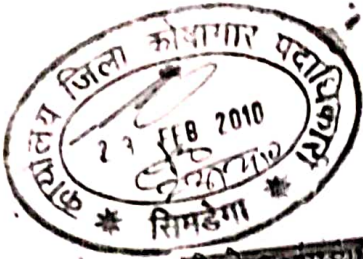 कार्यालय जिला कोषागार पदाधिकारी
23 FEB 2010
* सिमडेगा *